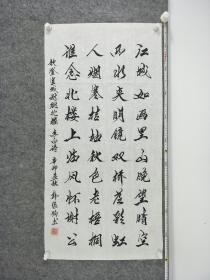 江城如画里山晚望晴空
两水夹明镜双桥落彩虹
人烟寒橘柚秋色老梧桐
谁念北楼上临风怀谢公
秋登宣城谢朓北楼 李白诗 辛卯 秋 书